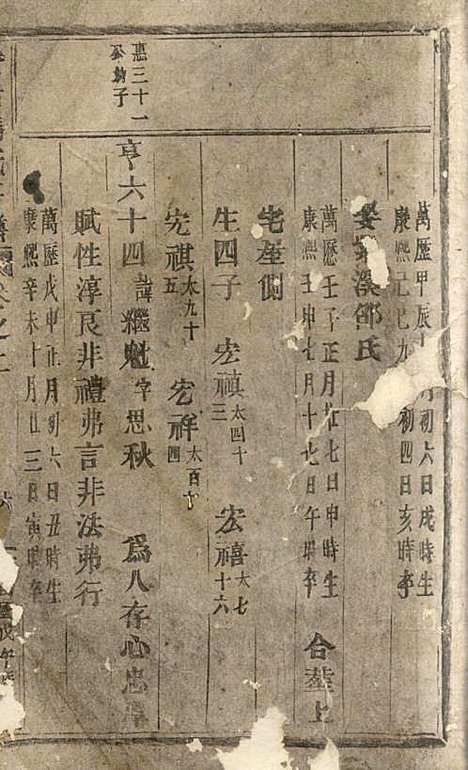 萬歷甲辰十 月初六日戌時生
康熙己巳九 初四日亥時卒
娶 溪邵氏
萬歷壬子正月廿七日申時生
康熙壬申七月十七日午時卒
合塟上
宅座側
生四子 宏禛太四十三 宏禧太七十六
宏祺太九十五 宏祥太百十四
惠三十一
公 子
亨六十四諱繼魁字思秋 爲人存心忠
賦性淳良非禮弗言非法弗行
萬歷戊申正月初六日丑時生
康熙辛未十月廿三日寅時卒